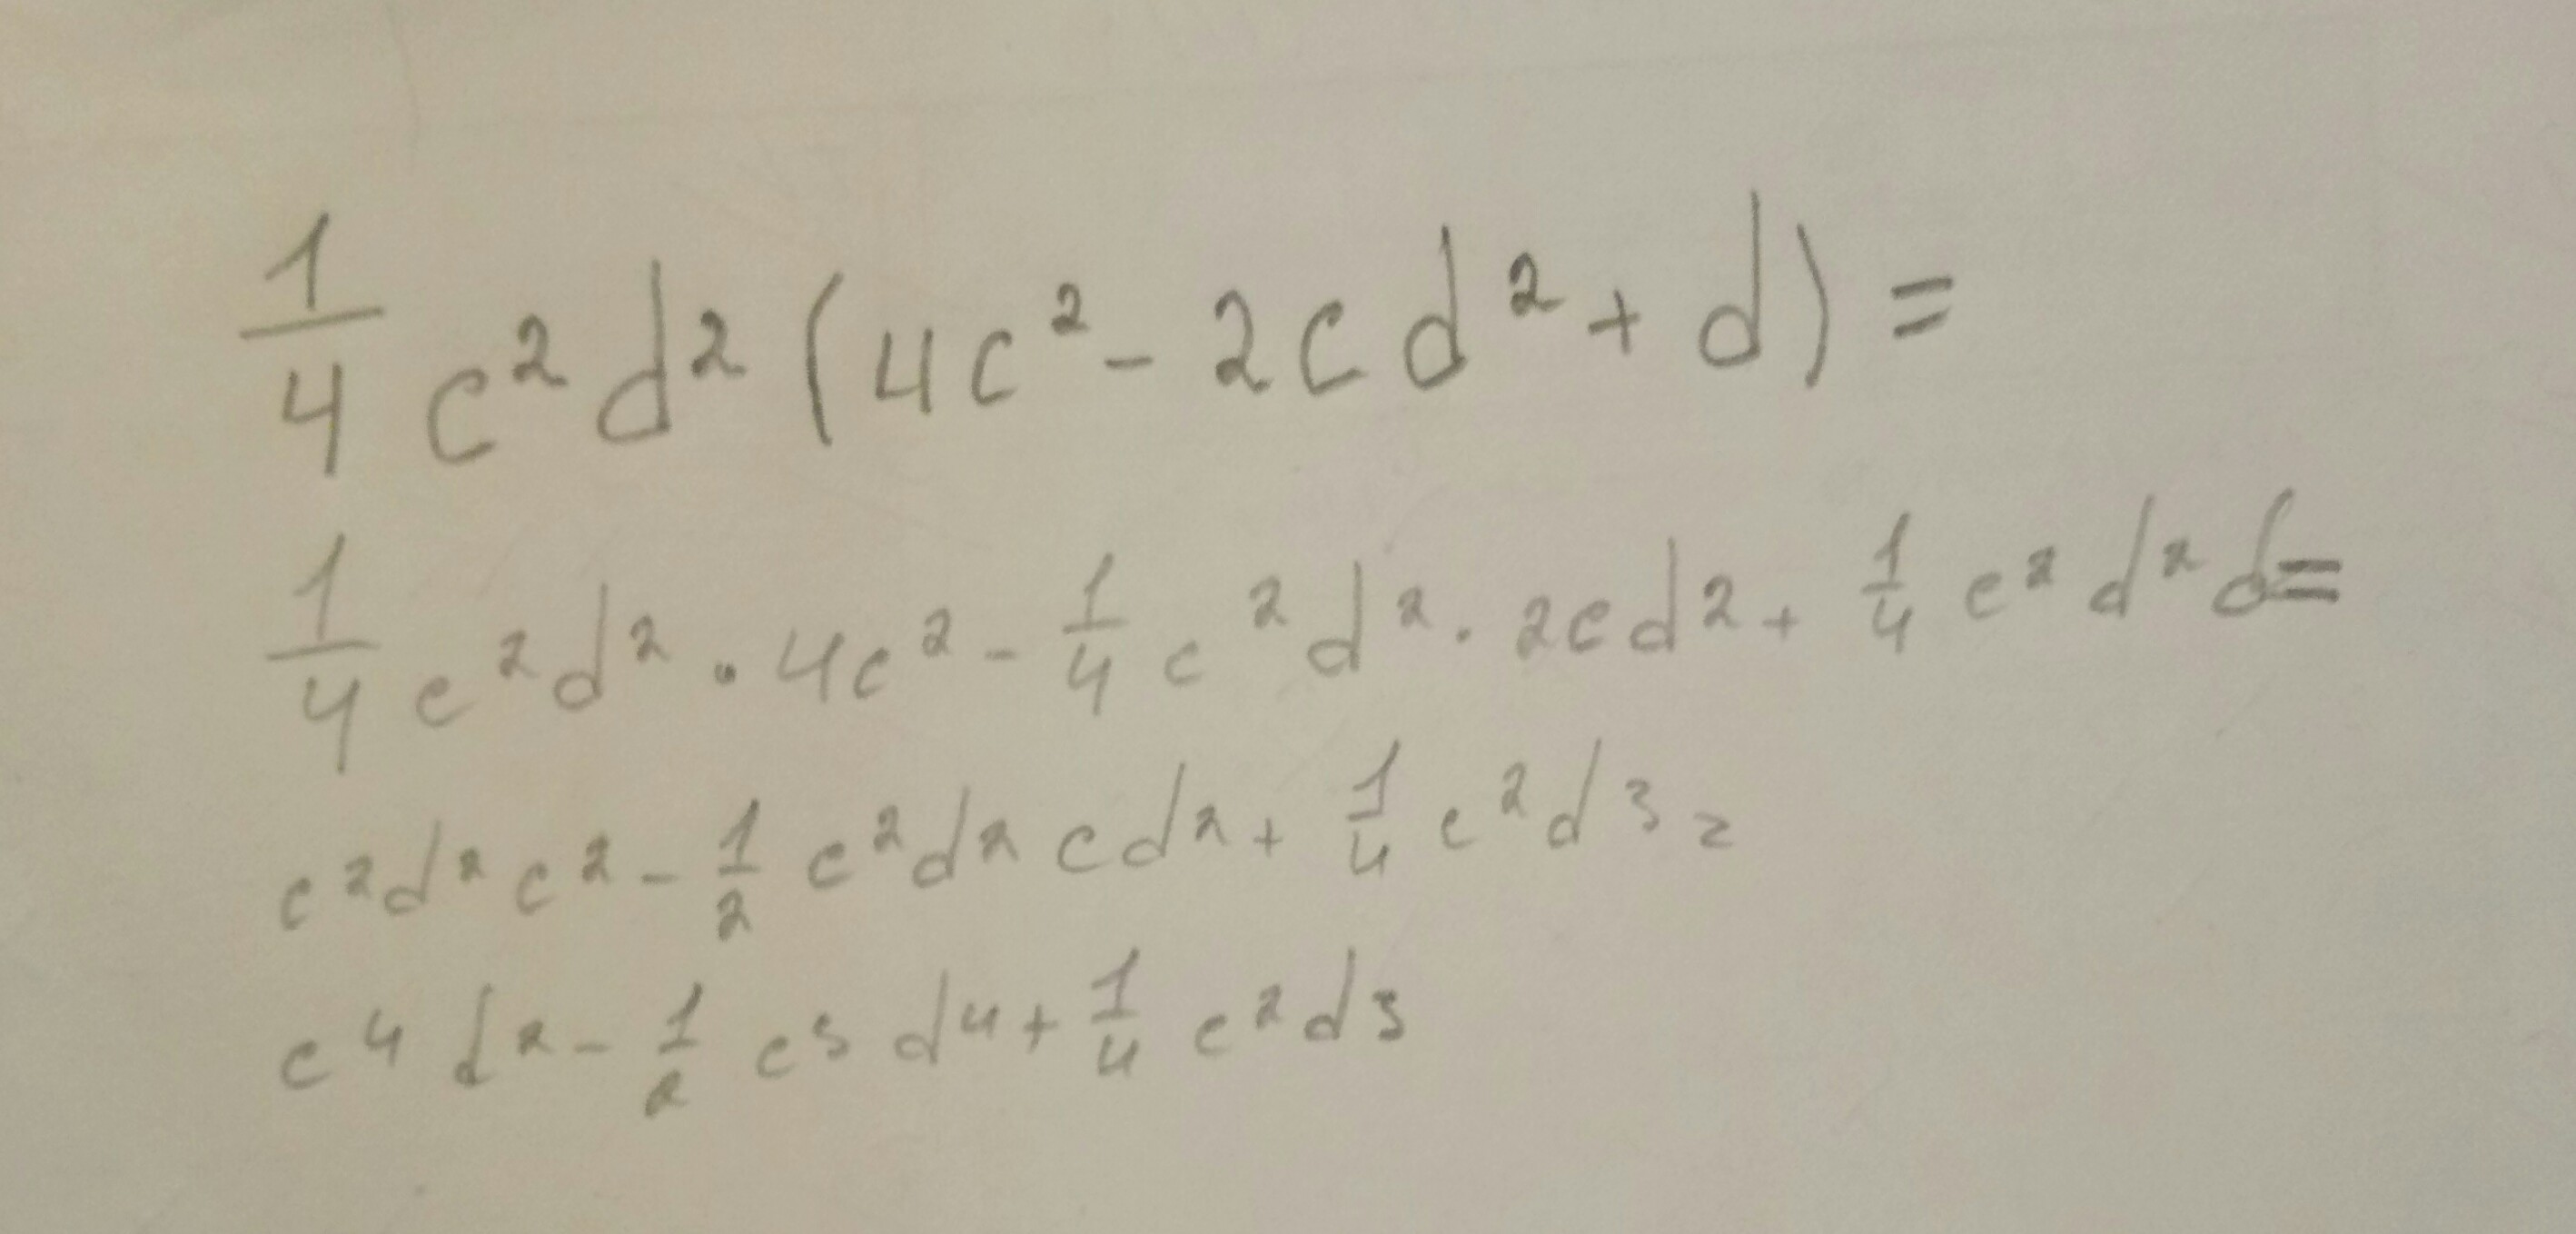 1/4 c²d²(4c² - 2cd² + d) =
1/4 c²d² · 4c² - 1/4 c²d² · 2cd² + 1/4 c²d²d =
c²d²c² - 1/2 c²d²cd² + 1/4 c²d³ =
c⁴d² - 1/2 c³d⁴ + 1/4 c²d³